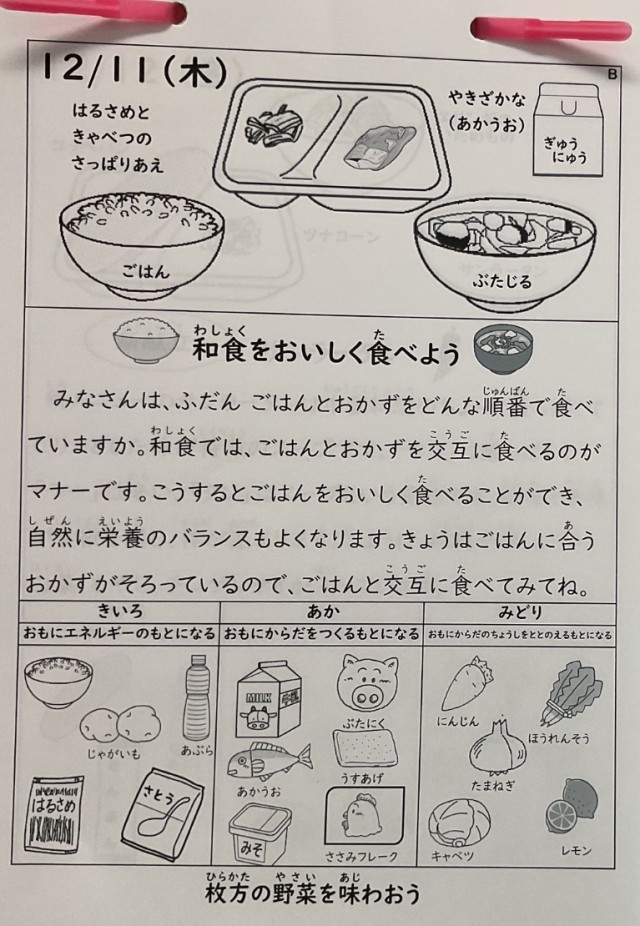 12/11(木)
B
はるさめと
きゃべつの
さっぱりあえ
やきざかな
(あかうお)
ぎゅう
にゅう
ごはん
ぶたじる
和食をおいしく食べよう
みなさんは、ふだん ごはんとおかずをどんな順番で食べ
ていますか。和食では、ごはんとおかずを交互に食べるのが
マナーです。こうするとごはんをおいしく食べることができ、
自然に栄養のバランスもよくなります。きょうはごはんに合う
おかずがそろっているので、ごはんと交互に食べてみてね。
きいろ
おもにエネルギーのもとになる
じゃがいも
あぶら
はるさめ
さとう
あか
おもにからだをつくるもとになる
MILK
ぶたにく
あかうお
うすあげ
みそ
ささみフレーク
みどり
おもにからだのちょうしをととのえるもとになる
にんじん
ほうれんそう
たまねぎ
キャベツ
レモン
枚方の野菜を味わおう